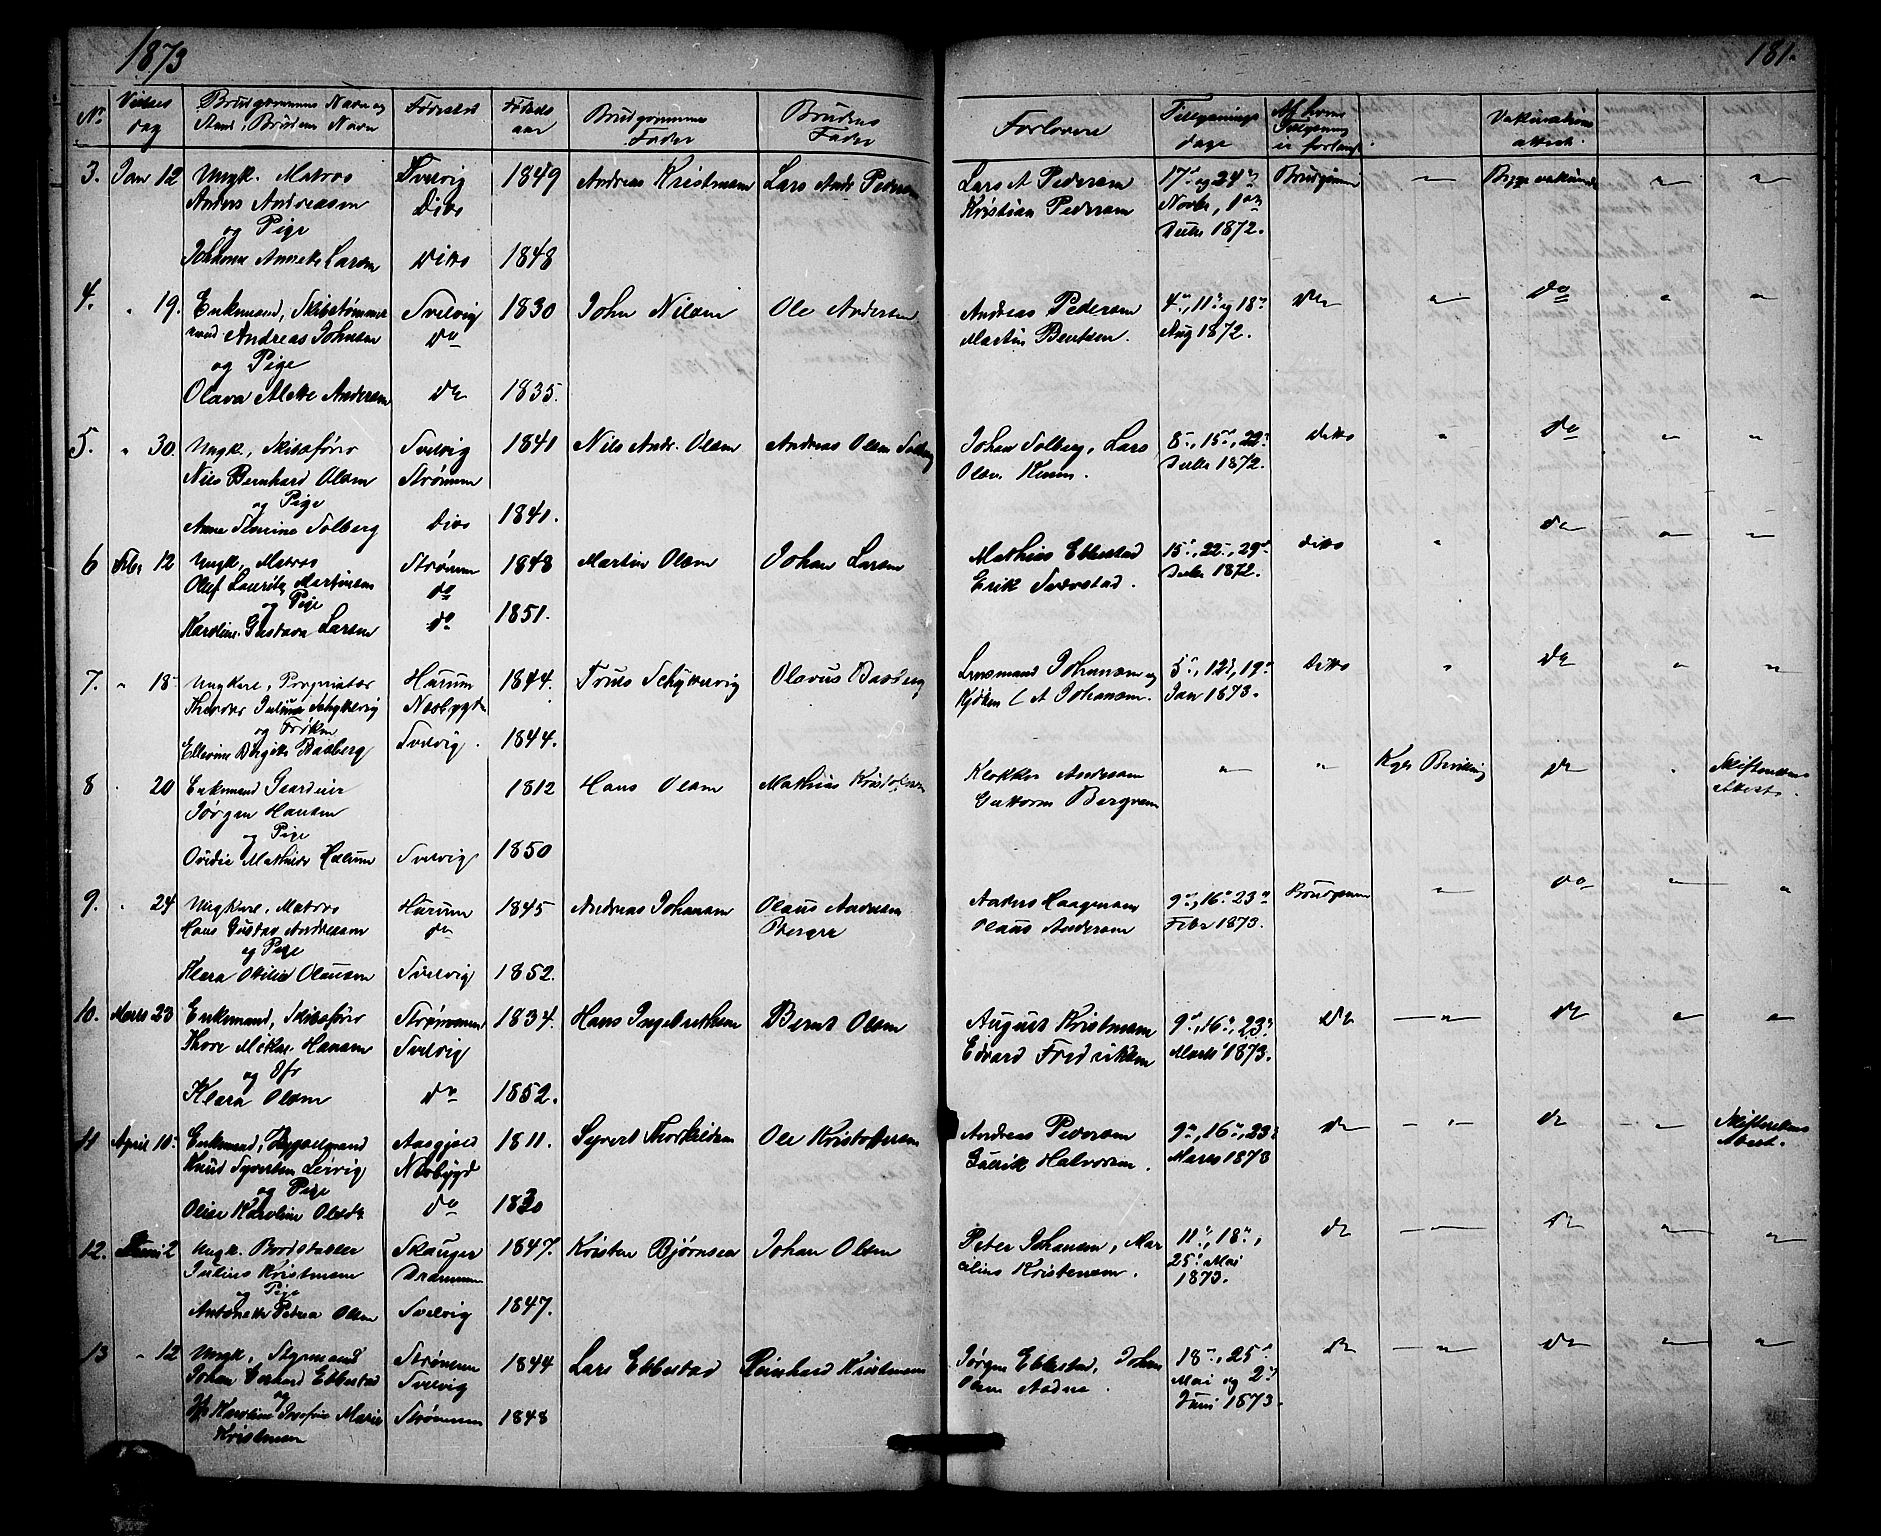 1873
181.
No. Vielses dag Brudgommens Navn og Stand, Brudens Navn Fødested Fødselsaar Brudgommens Fader Brudens Fader Forlovere Tillysnings dage Af hvem Tillysning er forlangt Vaksinations attest
3. Jan 12 Ungk. Matros Svelvig 1849 Andreas Kristensen Lars Andr Pedersen Lars A Pedersen 17de og 24de Brudgom — " — Begge vaksinerede — " — — " —
Anders Andreasen Ditto Kristian Pedersen Novbr, 1ste
og Pige Decbr 1872.
Johanne Annette Larsen Ditto 1848
4. " 19. Enkemand, Skibstømmer Svelvig 1830 John Nilsen Ole Andersen Andreas Pedersen 4de, 11te og 18de do — " — do " "
mand Andreas Johnsen do Martin Bentsen. Aug 1872.
og Pige
Olava Alette Andersen do 1835.
5. " 30. Ungk., Skibsfører Svelvig 1841 Nils Andr. Olsen Andreas Olsen Solberg Johan Solberg, Lars 8de, 15de, 22de ditto " do — " — "
Nils Bernhard Olsen Strømmen Olsen Decbr 1872.
og Pige
Anne Severine Solberg Ditto 1841.
6 Febr 12 Ungk, Matros Strømm 1848 Martin Olsen Johan Larsen Mathias Ebbestad 15de, 22de, 29de ditto " do — " — — " —
Oluf Lauritz Martinsen do Erik Sverstad. Decbr 1872.
og Pige
Karoline Gustava Larsen do 1851.
7. " 18 Ungkarl, Proprietær Hurum 1844. Truls Schjttevig Olavus Basberg Lensmand Johansen og 5te, 12te, 19de Ditto " do " "
Julius Næsbygd A Johansen. Jan 1873.
og Frøken
Ellevine Birgitte Basberg Svelvig. 1844.
8 " 20 Enkemand 1812 Hans Olsen Mathias Kristofersen Klokker Andersen — " — " Kgl. Bevilling do " Skifterettens
Jørgen Hansen Guttorm Bergersen Attest.
og Pige
Ovidie Mathilde Hurum Svelvig 1850
9. " 24 Ungkarl, Matros Hurum 1845 Andreas Johansen Olaus Andersen Anders Haagensen 9de, 16de 23de Brudgom — " — do — " — "
Hans Gustav Andreasen do Berger Olaus Andersen Febr 1873.
og Pige
Klara Otilie Olausen Svelvig 1852.
10. Marts 23 Enkemand, Skibsfører Strømmen 1834. Hans Ingebrethsen Bernt Olsen August Kristensen 9de, 16de, 23de do — " — do " "
Thore Hansen Svelvig Edvard Fredriksen Marts 1873.
og Jfr
Klara Olsen do 1852.
11 April 10. Enkemand, Aasgjed 1811. Syvert Thorkildsen Ole Kristoffersen Andreas Pedersen 9de, 16de, 23de do — " — do — " — Skifterettens
Knud Syvertsen Leirvig Næsbygd Halvorsen. Marts 1873 Attest.
og Pige
Olise Karoline Olsdr. do 1830
12. Juni 2 Ungk. Skauger 1847. Kristen Bjørnsen Johan Olsen Peter Johansen, Mar 11te, 18de, do — " — do " — " —
Julius Kristensen Drammen cilius Kristensen. 25de Mai
og Pige 1873.
Antonette Petrea Olsen Svelvig 1847.
13 " 12 Ungk, Styrmand Strømm 1844 Lars Ebbestad Reinhard Kristensen Jørgen Ebbestad, Johan 18de, 25de do — " — do — " — "
Johan Ebbestad Svelvig Olsen Mai og 2den
og Juni 1873.
Jfr Karoline Josefine Marie Strømmen 1848
Kristensen